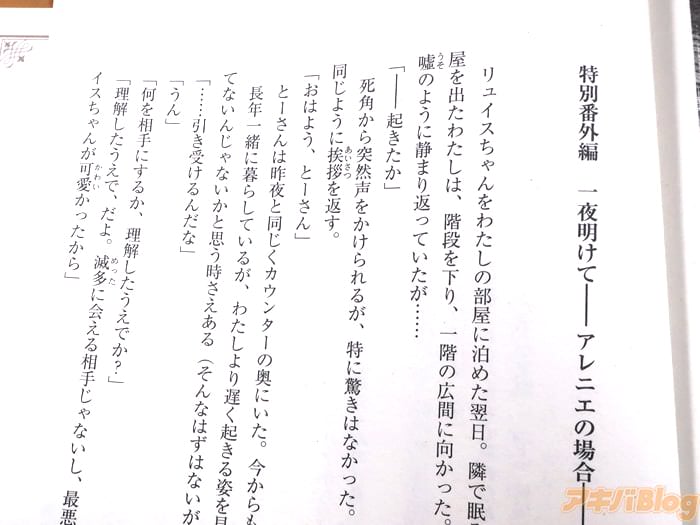 特別番外編　一夜明けて――アレニエの場合――
リュイスちゃんをわたしの部屋に泊めた翌日。隣で眠
屋を出たわたしは、階段を下り、一階の広間に向かった。
嘘のように静まり返っていたが……
「――起きたか」
死角から突然声をかけられるが、特に驚きはなかった。
同じように挨拶を返す。
「おはよう、とーさん」
とーさんは昨夜と同じくカウンターの奥にいた。今からも
長年一緒に暮らしているが、わたしより遅く起きる姿を見
てないんじゃないかと思う時さえある（そんなはずはないが
「……引き受けるんだな」
「うん」
「何を相手にするか、理解したうえでか？」
「理解したうえで、だよ。滅多に会える相手じゃないし、最悪
イスちゃんが可愛かったから」
アキバBlog